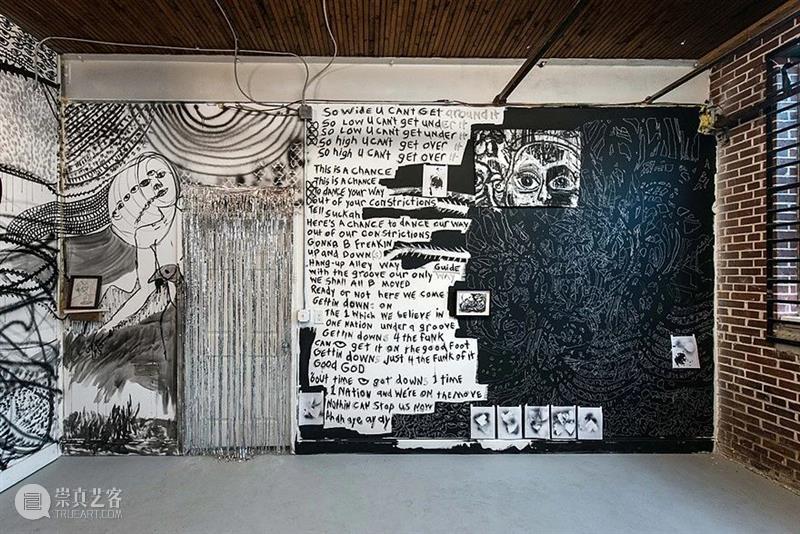 So wide U CAN't Get around it
So Low U can't get under it
So Low U can't get under it
So high U can't get over it
So high U can't get over it
This is a chance
This is a chance
To dance your way
out of your constrictions
Tell Suckah
Here's a chance to dance our way
out of our constrictions
Gonna B Freakin
up and Down(s)
Hang-up Alley Way
Guide
with the groove our only way
We shall All B moved
Ready or not here we come
Gettin downs on
the 1 which we believe in
ONE NATION under a groove
Gettin downs 4 the funk
CAN get it on the good foot
Gettin downs Just 4 the Funk of it
Good GOD
bout time got downs 1 time
1 Nation and we're on the move
Nothin CAN Stop us Now
崇真艺客
TRUEART.COM